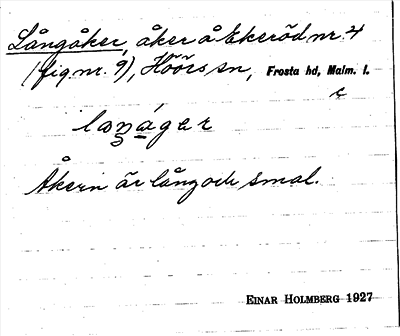 Långåker, åker å Ekeröd nr. 4
(fig. nr. 9), Höörs sn, Frosta hd, Malm. l.
Åkern är lång och smal.
EINAR HOLMBERG 1927